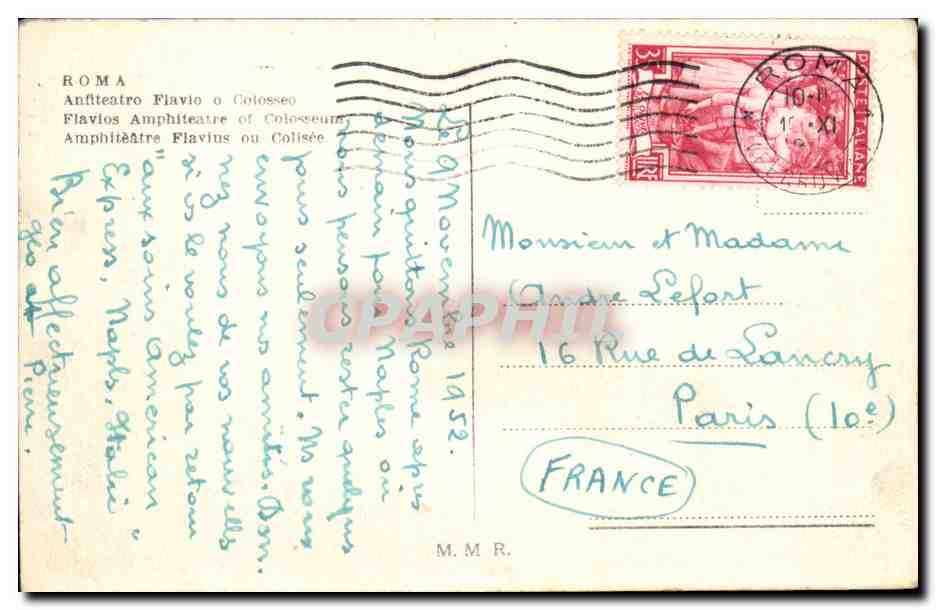 ROMA
Anfiteatro Flavio o Colosseo
Flavios Amphiteatre of Colosseum
Amphitèâtre Flavius ou Colisée
Le 9 Novembre 1952.
Nous quittons Rome après
demain pour Naples où
nous pensons rester quelques
jours seulement. Ns vous
envoyons nos amitiés. Don
nez nous de vos nouvelles
si vs le voulez par retour
"aux soins American
Express, Naples, Italie"
Bien affectueusement
Pierre
35 LIRE
POSTE ITALIANE
ROMA
10-11
XI
Monsieur et Madame
André Lefort
16 Rue de Lancry
Paris (10e)
FRANCE
M. M R.
CPAPHIL